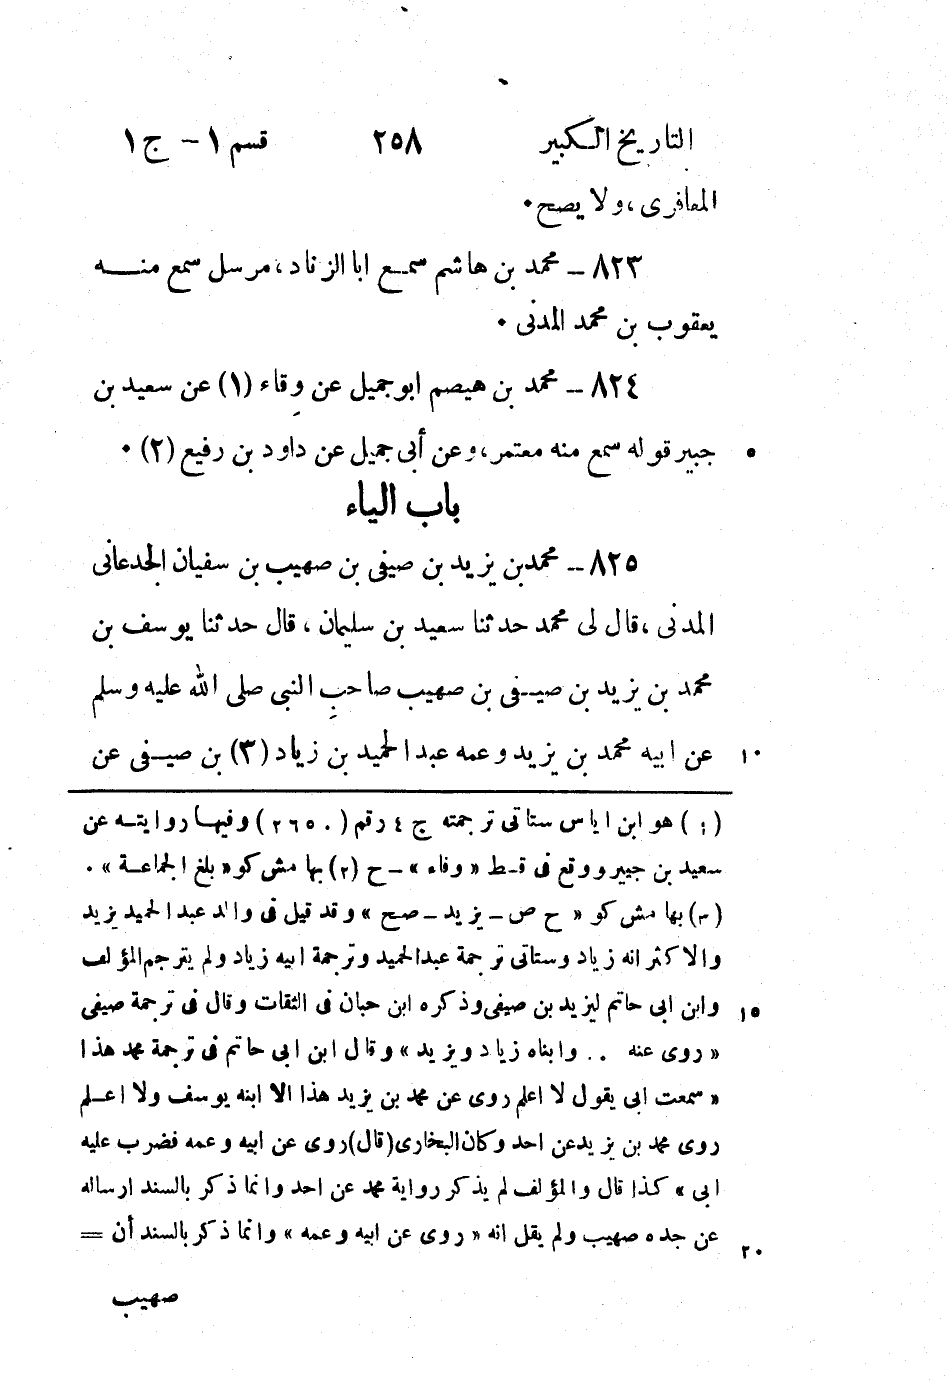 التاريخ الكبير ٢٥٨ قسم ١ - ج ١
المعافرى، ولا يصح ٠
٨٢٣ - محمد بن هاشم سمع ابا الزناد، مرسل سمع منه
يعقوب بن محمد المدنى ٠
٨٢٤ - محمد بن هيصم ابو جميل عن وقاء (١) عن سعيد بن
جبير قوله سمع منه معتمر، وعن أبى جميل عن داود بن رفيع (٢) ٠ ٥
باب الياء
٨٢٥ - محمد بن يزيد بن صيفى بن صهيب بن سفيان الجدعانى
المدنى، قال لى محمد حدثنا سعيد بن سليمان، قال حدثنا يوسف بن
محمد بن يزيد بن صيفى بن صهيب صاحب النبى صلى الله عليه وسلم
عن ابيه محمد بن يزيد وعمه عبد الحميد بن زياد (٣) بن صيفى عن ١٠
(١) هو ابن اياس ستاتى ترجمته ج ٤ رقم (٢٦٥٠) وفيها روايته عن
سعيد بن جبير ووقع فى قط «وفاء» - ح (٢) بها مش كو «بلغ الجماعة» .
(٣) بها مش كو « ح ص - يزيد - صح » وقد قيل فى والد عبد الحميد يزيد
والاكثر انه زياد وستاتى ترجمة عبد الحميد وترجمة ابيه زياد ولم يترجم المؤلف
وابن ابى حاتم ليزيد بن صيفى وذكره ابن حبان فى الثقات وقال فى ترجمة صيفى ١٥
« روى عنه .. وابناه زياد ويزيد » وقال ابن ابى حاتم فى ترجمة محمد هذا
« سمعت ابى يقول لا اعلم روى عن محمد بن يزيد هذا الا ابنه يوسف ولا اعلم
روى محمد بن يزيد عن احد وكان البخارى (قال) روى عن ابيه وعمه فضرب عليه
ابى » كذا قال والمؤلف لم يذكر رواية محمد عن احد وانما ذكر بالسند ارساله
عن جده صهيب ولم يقل انه « روى عن ابيه وعمه » وانما ذكر بالسند أن = ٢٠
صهيب